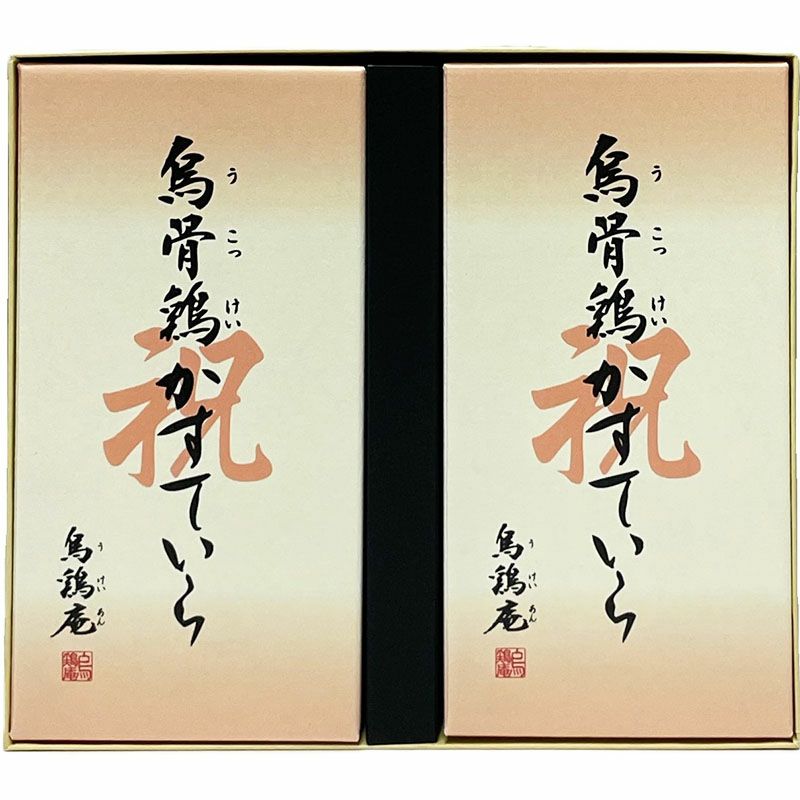 烏骨鶏かすていら
うこっけい
祝
烏鶏庵
うけいあん
烏鶏庵
烏骨鶏かすていら
うこっけい
祝
烏鶏庵
うけいあん
烏鶏庵